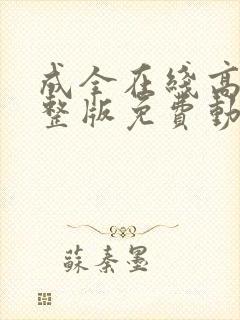 成全在线高
整版免費動
蘇秦墨